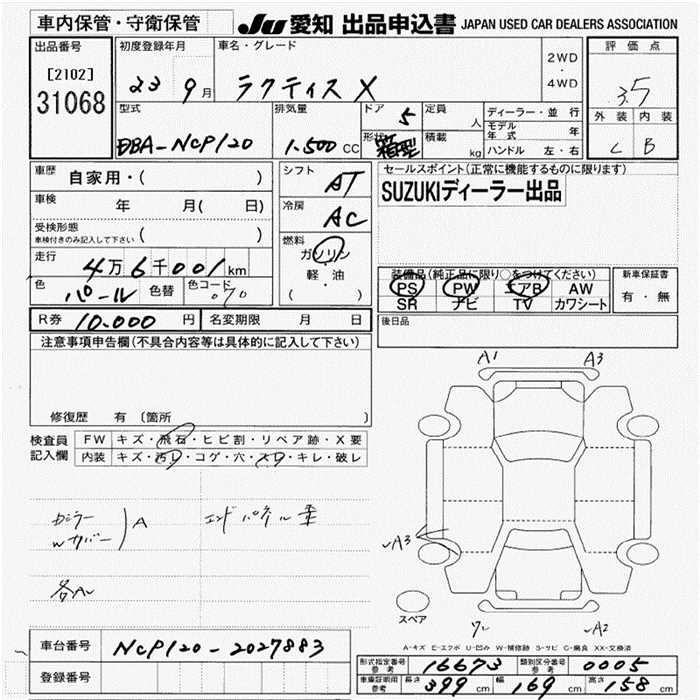 車内保管・守衛保管
JU 愛知 出品申込書 JAPAN USED CAR DEALERS ASSOCIATION
出品番号 初度登録年月 車名・グレード 2WD・4WD 評価点
[2102] 31068 23 9月 ラクティス X 3.5
型式 排気量 ドア 5 定員 人 ディーラー・並行 外装 内装
DBA-NCP120 1.500 CC 形状 箱型 積載 kg モデル年式 年 C B
ハンドル 左・右
車歴 自家用・( ) シフト AT セールスポイント(正常に機能するものに限ります)
車検 年 月( 日) 冷房 AC SUZUKIディーラー出品
受検形態 車検付きのみ記入して下さい ( )
走行 4万6千001km 燃料 ガソリン・軽油・( )
装備品(純正品に限り○をつけてください) 新車保証書
色 パール 色替 色コード 070 PS PW エアB AW 有・無
SR ナビ TV カワシート
R券 10.000円 名変期限 月 日 後日品
注意事項申告欄(不具合内容等は具体的に記入して下さい)
A1 A3
修復歴 有 〔箇所 〕
検査員記入欄 FW キズ・飛石・ヒビ割・リペア跡・X要
内装 キズ・汚レ・コゲ・穴・スレ・キレ・破レ
A エンドパネル
Wカバー
各A
A3
スペア
A2
A-キズ E-エクボ U-凹み W-補修跡 S-サビ C-腐食 XX-交換済
車台番号 NCP120-2027883
形式指定番号 参考 16673 類別区分番号 参考 0005
登録番号 車庫証明用 参考 長さ 399 cm 幅 169 cm 高さ 158 cm